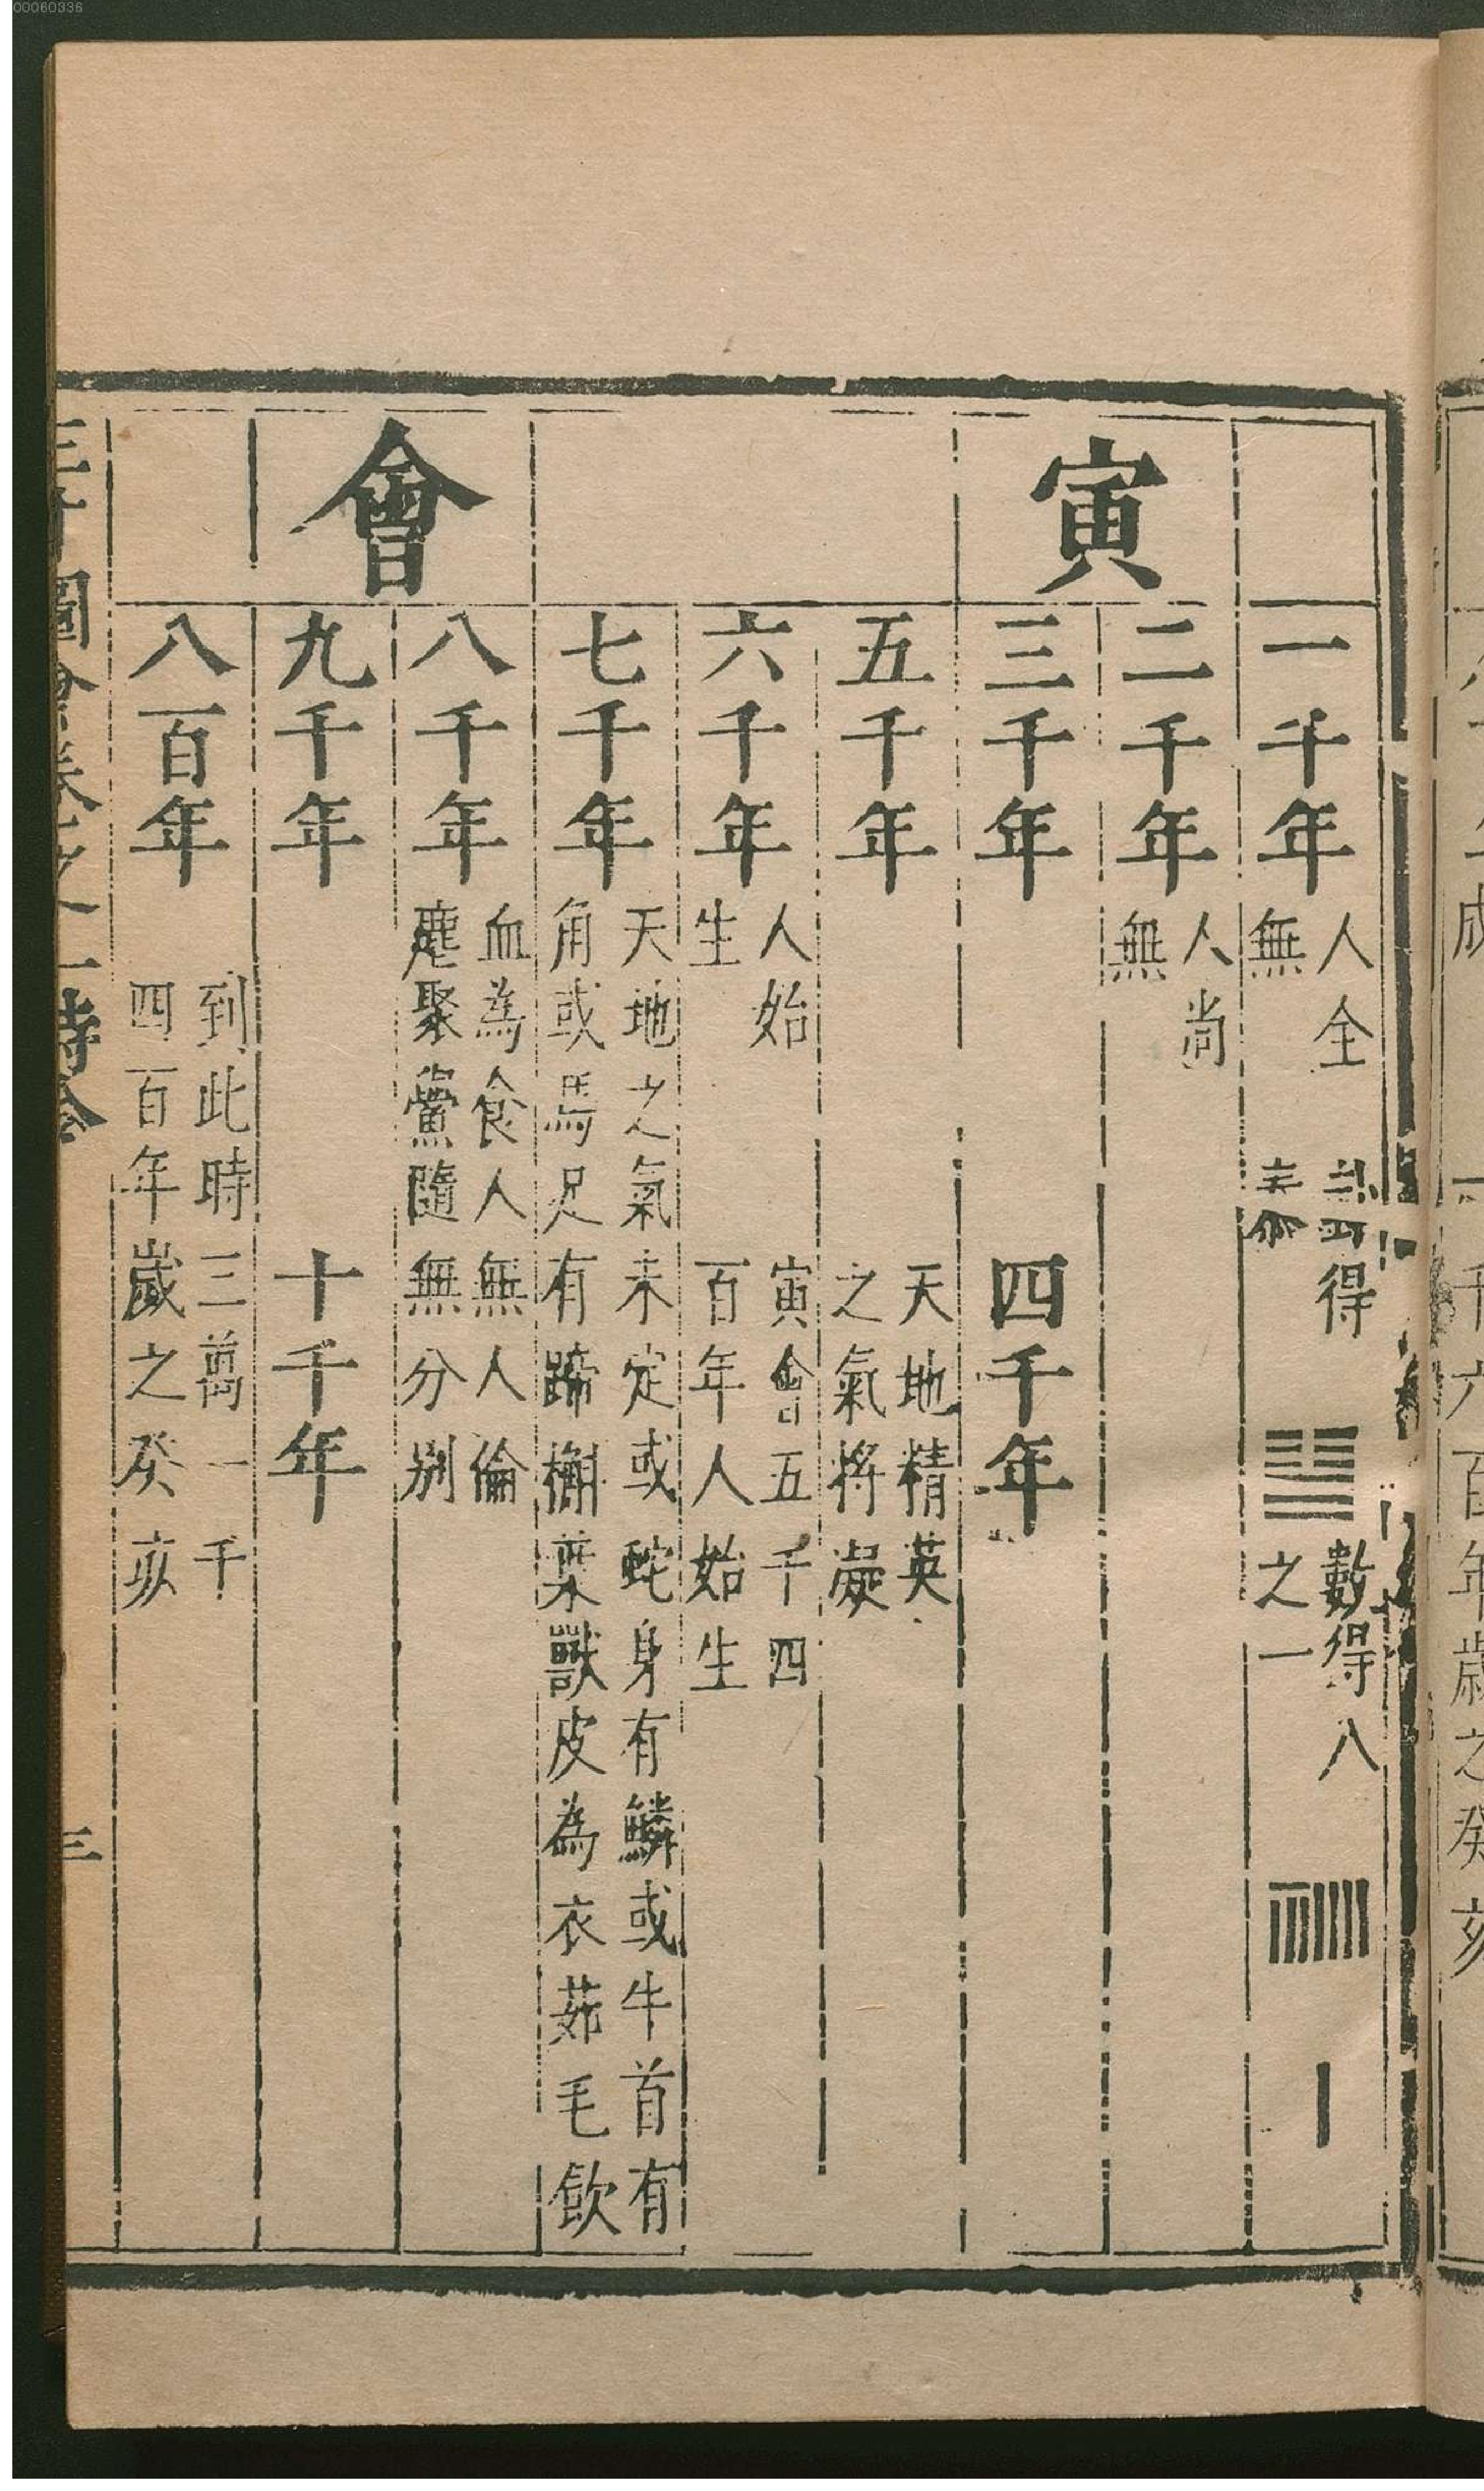 00060336
寅會
一千年
人全
無
得
數得八
之一
二千年
人尚
無
三千年
四千年
五千年
天地精英
之氣將凝
六千年
人始
生
寅會五千四
百年人始生
七千年
天地之氣未定或蛇身有鱗或牛首有
角或馬足有蹄檞葉獸皮為衣茹毛飲
八千年
血為食人無人倫
麀聚黨隨無分別
九千年
十千年
八百年
到此時三萬一千
四百年歲之癸亥
三才圖會卷之一時令
三